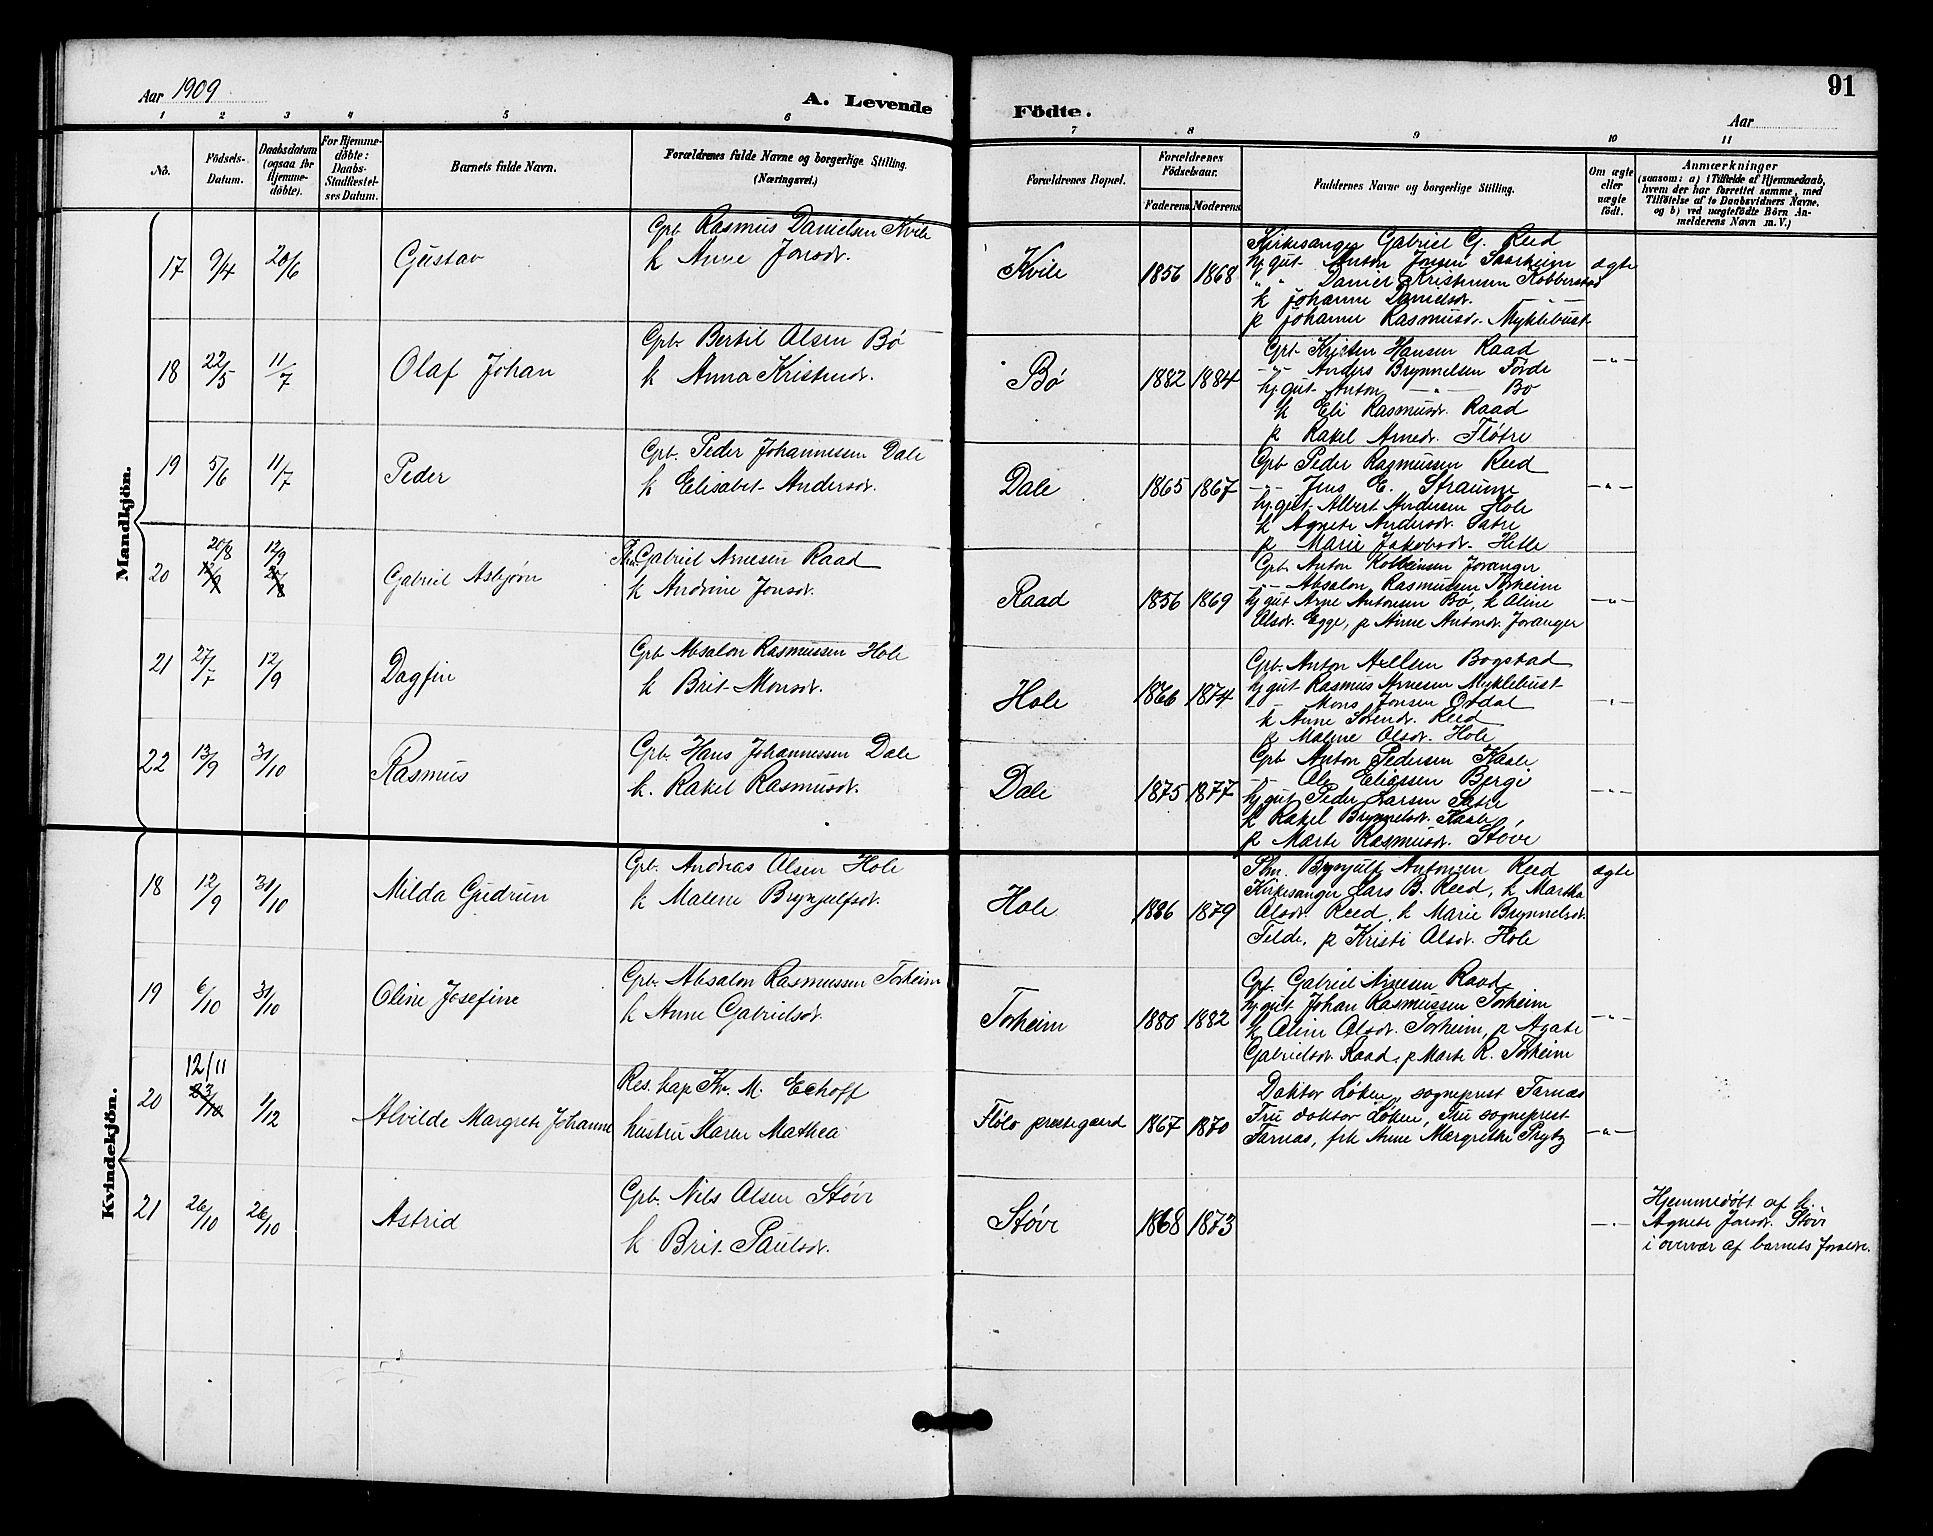 Aar 1909
A. Levende
Födte.
91
Aar
1 2 3 4 5 6 7 8 9 10 11
No.
Födsels-Datum.
Daabsdatum (ogsaa for Hjemme-döbte).
For Hjemme-döbte: Daabs-Stadfestel-ses Datum.
Barnets fulde Navn.
Forældrenes fulde Navne og borgerlige Stilling. (Næringsvei.)
Forældrenes Bopæl.
Forældrenes Födselsaar.
Faderens. Moderens.
Faddernes Navne og borgerlige Stilling.
Om ægte eller uægte födt.
Anmærkninger
(saasom: a) i Tilfælde af Hjemmedaab,
hvem der har forrettet samme, med
Tilföielse af to Daabsvidners Navne,
og b) ved uægtefödte Börn An-
melderens Navn m. V.)
Mandkjön.
17 9/4 20/6 Gustav
Gpb Rasmus Danielsen Kvile
k Anne Jonsdr.
Kvile 1856 1868
Kirkesanger Gabriel G. Reed
hj gut Anton Jonsen Skarheim
" " Daniel Kristensen Kobberstad
k Johanne Danielsdr. — " —
p Johanne Rasmusdr. Myklebust
ægte
18 22/5 11/7 Olaf Johan
Gpb. Bertil Olsen Bø
k Anna Kristendr.
Bø 1882 1884
Gpb Kristen Hansen Raad
—"— Anders Brynnelsen Förde
hj gut Anton —"— Bø
k Eli Rasmusdr. Raad
p Rakel Arnedr. Fløtre
—"—
19 5/6 11/7 Peder
Gpb. Peder Johannesen Dale
k Elisabet Andersdr.
Dale 1865 1867
Gpb Peder Rasmussen Reed
—"— Jens E. Straume
hj. gut Albert Andersen Hole
k Agnete Andersdr. Sætre
p Marie Jakobsdr. Hetle
—"—
20 20/8 12/9 12/9 20/8 Gabriel Asbjørn
Gabriel Arnesen Raad
k Andrine Jonsdr.
Raad 1856 1869
Gpb Anton Kolbeinsen Joranger
—"— Absalon Rasmussen Torheim
hj gut Arne Antonsen Bø, k Aline
Olsdr. Egge, p Anne Antondr. Joranger
—"—
21 12/9 Dagfin
Gpb Absalon Rasmussen Hole
k Brit Monsdr.
Hole 1866 1874
Gpb. Anton Bogstad
hj gut Rasmus Arnesen Myklebust
—"— Mons Jonsen Ordal
k Anne Sørendr. Reed
p Malene Olsdr. Hole
—"—
22 13/9 31/10 Rasmus
Gpb. Hans Johannessen Dale
k. Rakel Rasmusdr.
Dale 1875 1877
Gpb Anton Pedersen Kaale
—"— Ole Eliassen Berge
hj gut Peder Larsen Sætre
k Rakel Brynnelsdr. Kaale
p Marte Rasmusdr. Støve
—"—
Kvindekjön.
18 12/9 31/10 Milda Gudrun
Gpb. Andreas Olsen Hole
k Malene Brynjulfsdr.
Hole 1886 1879
Brynjulf Antonsen Reed
Kirkesanger Lars B. Reed, k Martha
Olsdr. Reed, k Marie Brynnelsdr.
Felde, p Kristi Olsdr. Hole
ægte
19 6/10 31/10 Oline Josefine
Gpb. Absalon Rasmussen Torheim
k Anne Gabrielsdr.
Torheim 1880 1882
Gpb. Gabriel Arnesen Raad,
hj. gut Johan Rasmussen Torheim
k Aline Olsdr. Torheim, p Agate
Gabrielsdr. Raad, p Marte R. Torheim
—"—
20 12/11 23/10 1/12 Alvilde Margrete Johanne
Res. kap Kr. M. Eckhoff
hustru Karen Mathea
Flölo prestegaard 1867 1870
Doktor Løken, sogneprest Farnæs
Fru doktor Løken, Fru sogneprest
Farnæs, frk Anne Margrethe Prytz
—"—
21 26/10 26/10 Astrid
Gpb. Nils Olsen Støve
k Brit Paulsdr.
Støve 1868 1873
—"—
Hjemmedøbt af k.
Agnete Jonsdr. Støve
i overvær af barnets foreldre.